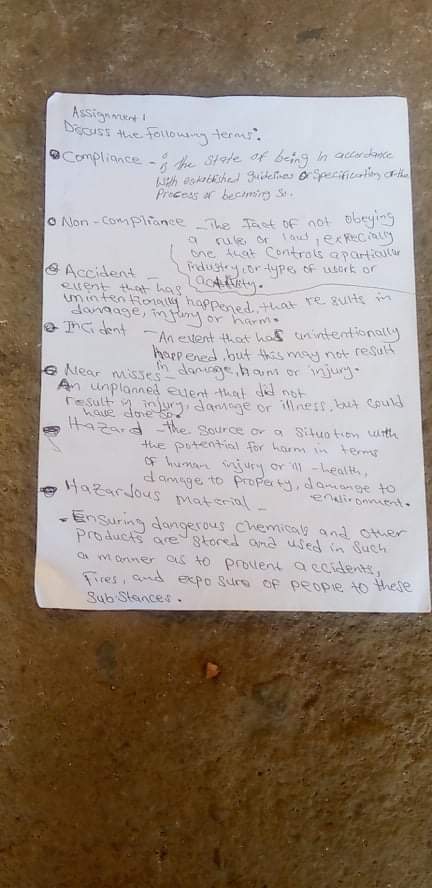 Assignment 1
Discuss the following terms:
Compliance - is the state of being in accordance
with established guidelines or specification or the
process or becoming so.
Non-compliance - The fact of not obeying
a rule or law, expecially
one that controls a particular
industry, or types of work or
activity.
Accident -
event that has
unintentionally happened, that results in
damage, injury or harm.
Incident - An event that has unintentionally
happened, but this may not result
in damage, harm or injury.
Near misses -
An unplanned event that did not
result in injury, damage or illness, but could
have done so.
Hazard - the source or a situation with
the potential for harm in terms
of human injury or ill-health,
damage to property, damange to
environment.
Hazardous material -
- Ensuring dangerous chemicals and other
products are stored and used in such
a manner as to prevent accidents,
fires, and exposure of people to these
substances.